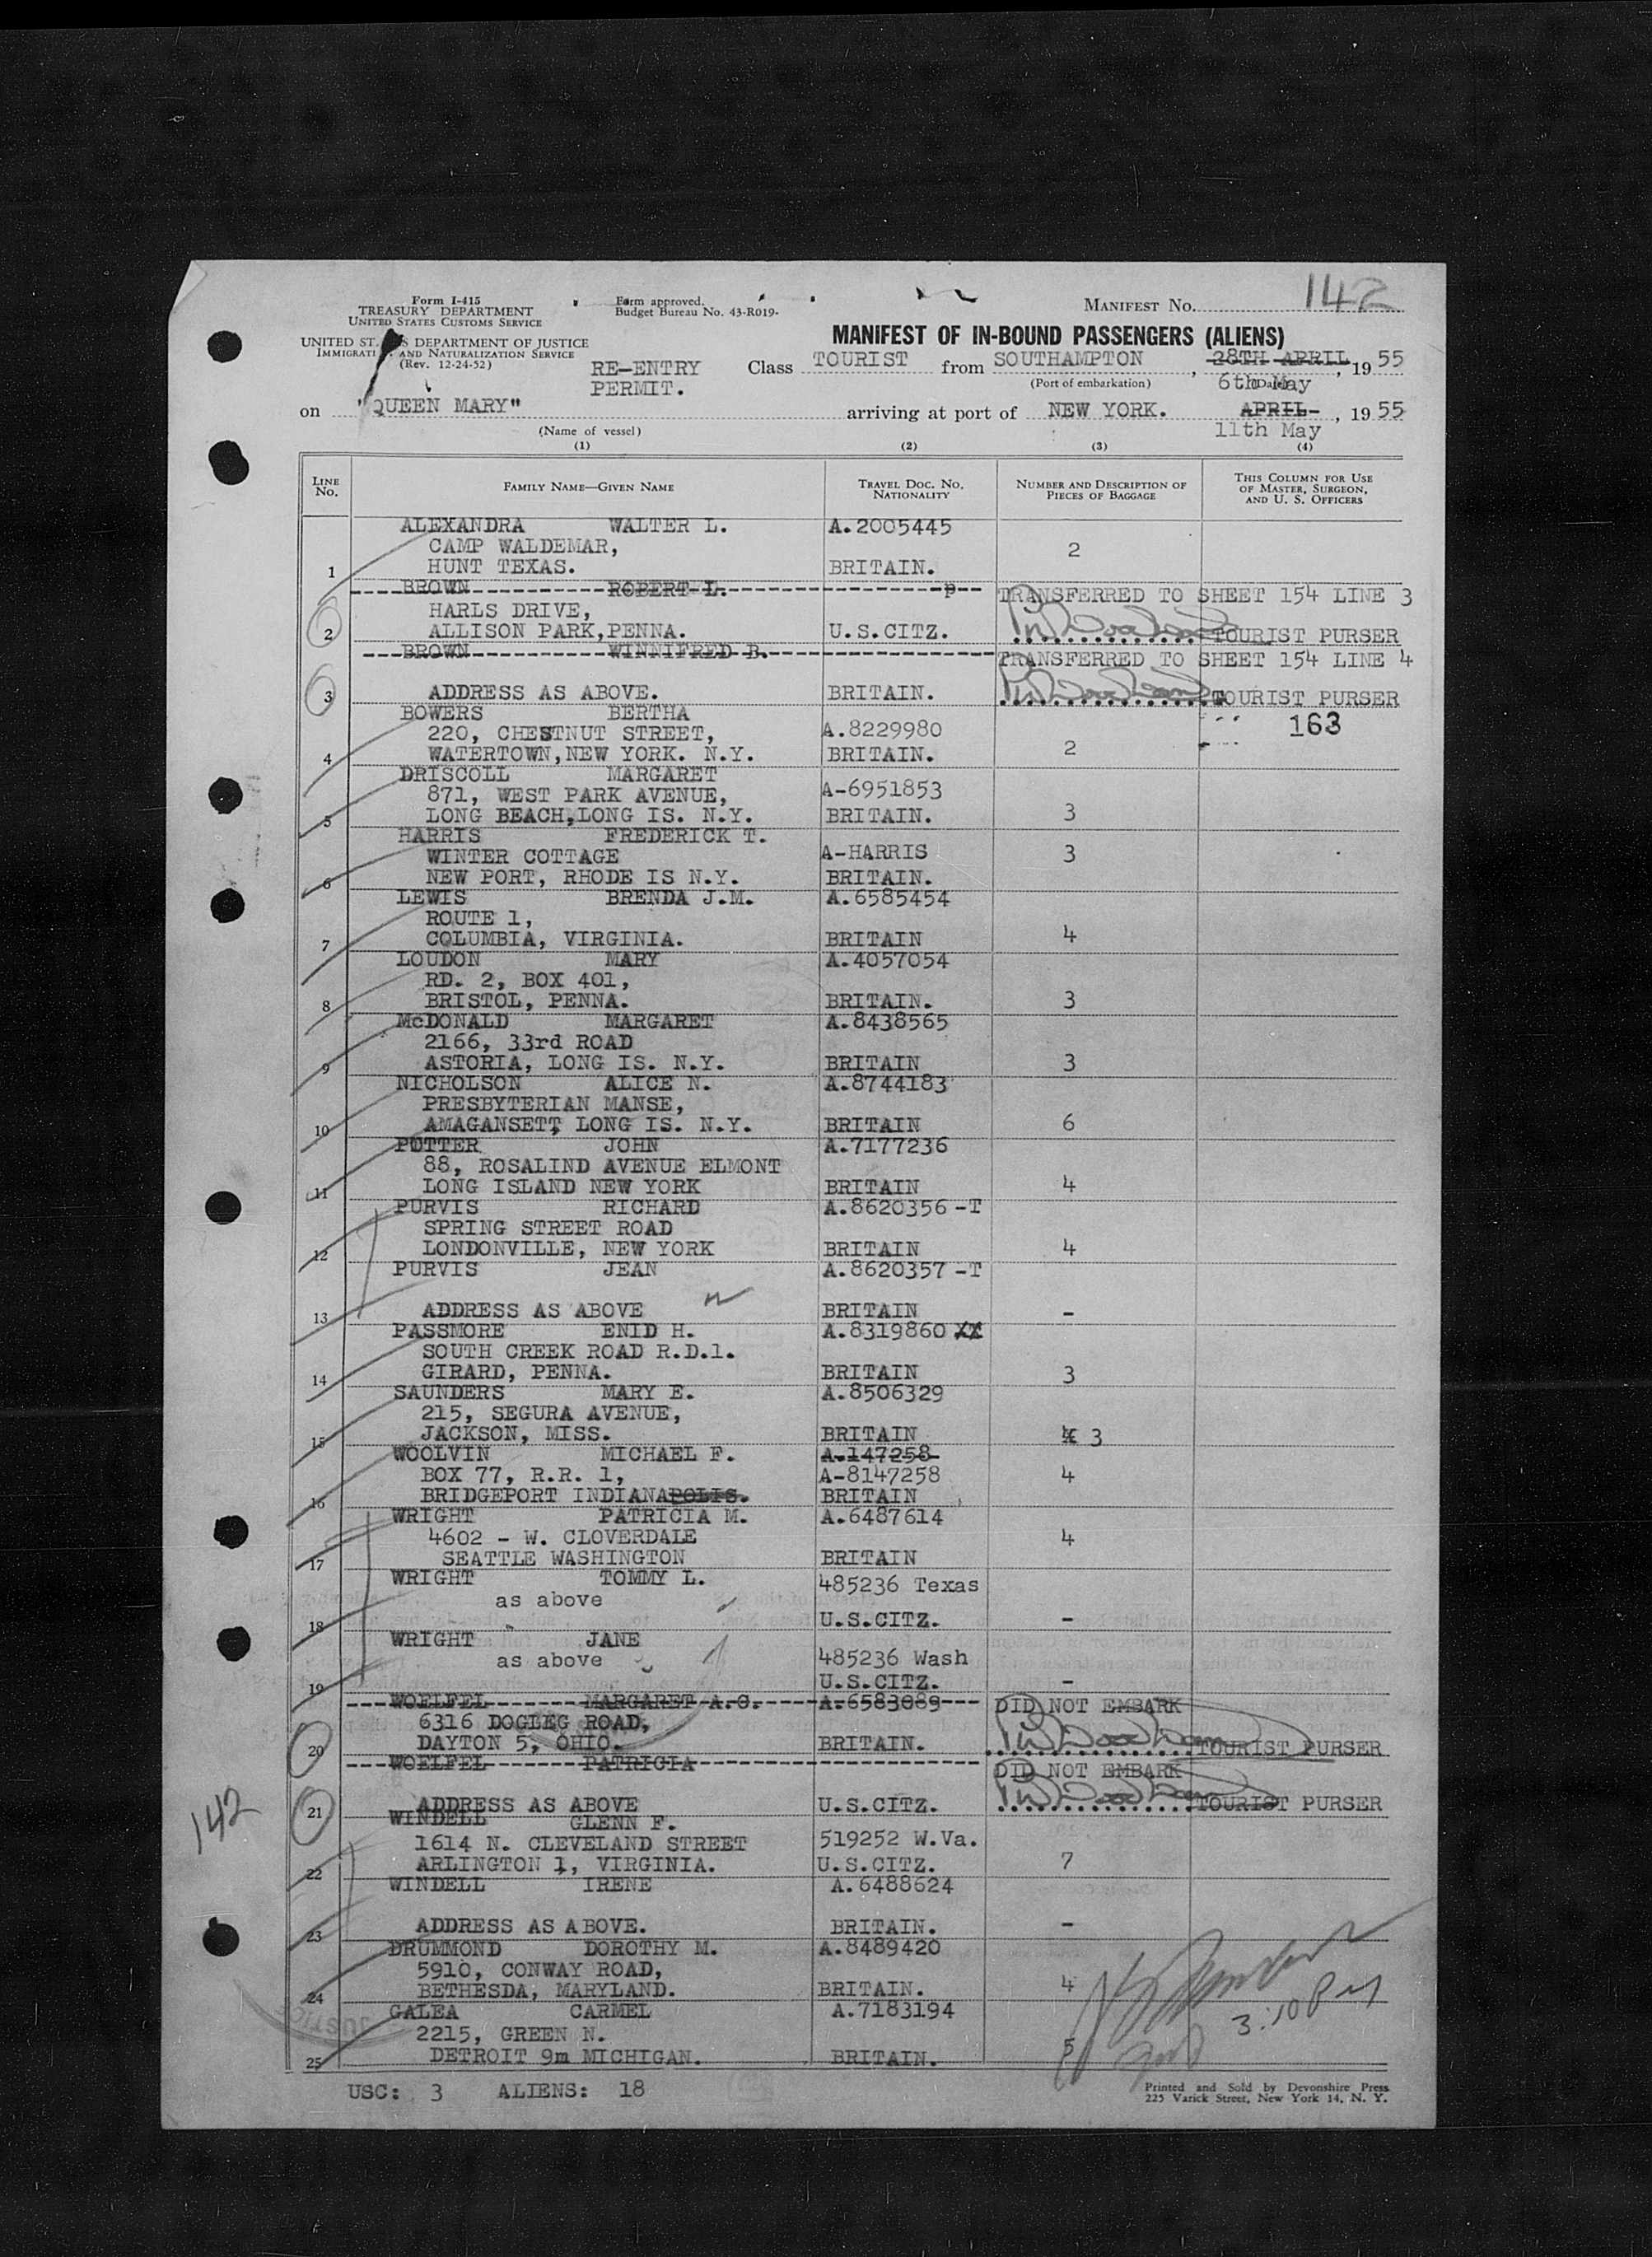 142
Form I-415
TREASURY DEPARTMENT
UNITED STATES CUSTOMS SERVICE
Form approved.
Budget Bureau No. 43-R019-
MANIFEST NO. 142
UNITED ST S DEPARTMENT OF JUSTICE
IMMIGRATI AND NATURALIZATION SERVICE
(Rev. 12-24-52)
MANIFEST OF IN-BOUND PASSENGERS (ALIENS)
RE-ENTRY
PERMIT.
Class TOURIST from SOUTHAMPTON, 28TH APRIL, 1955
(Port of embarkation) 6th May (Date)
on "QUEEN MARY" arriving at port of NEW YORK. APRIL-, 1955
(Name of vessel) 11th May
(1) (2) (3) (4)
LINE No. FAMILY NAME—GIVEN NAME TRAVEL DOC. NO. NATIONALITY NUMBER AND DESCRIPTION OF PIECES OF BAGGAGE THIS COLUMN FOR USE OF MASTER, SURGEON, AND U. S. OFFICERS
ALEXANDRA WALTER L. A.2005445
CAMP WALDEMAR, 2
1 HUNT TEXAS. BRITAIN.
BROWN ROBERT L. p TRANSFERRED TO SHEET 154 LINE 3
HARLS DRIVE,
2 ALLISON PARK,PENNA. U.S.CITZ. TOURIST PURSER
BROWN WINNIFRED B. TRANSFERRED TO SHEET 154 LINE 4
3 ADDRESS AS ABOVE. BRITAIN. TOURIST PURSER
BOWERS BERTHA 163
220, CHESTNUT STREET, A.8229980
4 WATERTOWN,NEW YORK. N.Y. BRITAIN. 2
DRISCOLL MARGARET
871, WEST PARK AVENUE, A-6951853
5 LONG BEACH,LONG IS. N.Y. BRITAIN. 3
HARRIS FREDERICK T.
WINTER COTTAGE A-HARRIS 3
6 NEW PORT, RHODE IS N.Y. BRITAIN.
LEWIS BRENDA J.M. A.6585454
ROUTE 1,
7 COLUMBIA, VIRGINIA. BRITAIN 4
LOUDON MARY A.4057054
RD. 2, BOX 401,
8 BRISTOL, PENNA. BRITAIN. 3
McDONALD MARGARET A.8438565
2166, 33rd ROAD
9 ASTORIA, LONG IS. N.Y. BRITAIN 3
NICHOLSON ALICE N. A.8744183
PRESBYTERIAN MANSE,
10 AMAGANSETT, LONG IS. N.Y. BRITAIN 6
POTTER JOHN A.7177236
88, ROSALIND AVENUE ELMONT
11 LONG ISLAND NEW YORK BRITAIN 4
PURVIS RICHARD A.8620356 -T
SPRING STREET ROAD
12 LONDONVILLE, NEW YORK BRITAIN 4
PURVIS JEAN A.8620357 -T
13 ADDRESS AS ABOVE BRITAIN -
PASSMORE ENID H. A.8319860 XX
SOUTH CREEK ROAD R.D.1.
14 GIRARD, PENNA. BRITAIN 3
SAUNDERS MARY E. A.8506329
215, SEGURA AVENUE,
15 JACKSON, MISS. BRITAIN 4 3
WOOLVIN MICHAEL F. A.147258
BOX 77, R.R. 1, A-8147258 4
16 BRIDGEPORT INDIANAPOLIS. BRITAIN
WRIGHT PATRICIA M. A.6487614
4602 - W. CLOVERDALE 4
17 SEATTLE WASHINGTON BRITAIN
WRIGHT TOMMY L. 485236 Texas
as above
18 U.S.CITZ. -
WRIGHT JANE
as above 485236 Wash
19 U.S.CITZ. -
WOELFEL MARGARET A.C. A.6583089 DID NOT EMBARK
6316 DOGLEG ROAD,
20 DAYTON 5, OHIO. BRITAIN. TOURIST PURSER
WOELFEL PATRICIA DID NOT EMBARK
21 ADDRESS AS ABOVE U.S.CITZ. TOURIST PURSER
142
WINDELL GLENN F.
1614 N. CLEVELAND STREET 519252 W.Va.
22 ARLINGTON 1, VIRGINIA. U.S.CITZ. 7
WINDELL IRENE A.6488624
23 ADDRESS AS ABOVE. BRITAIN. -
DRUMMOND DOROTHY M. A.8489420
5910, CONWAY ROAD,
24 BETHESDA, MARYLAND. BRITAIN. 4
GALEA CARMEL A.7183194 3:10 PM
2215, GREEN N.
25 DETROIT 9m MICHIGAN. BRITAIN. 5
USC: 3 ALIENS: 18
Printed and Sold by Devonshire Press
225 Varick Street, New York 14, N. Y.